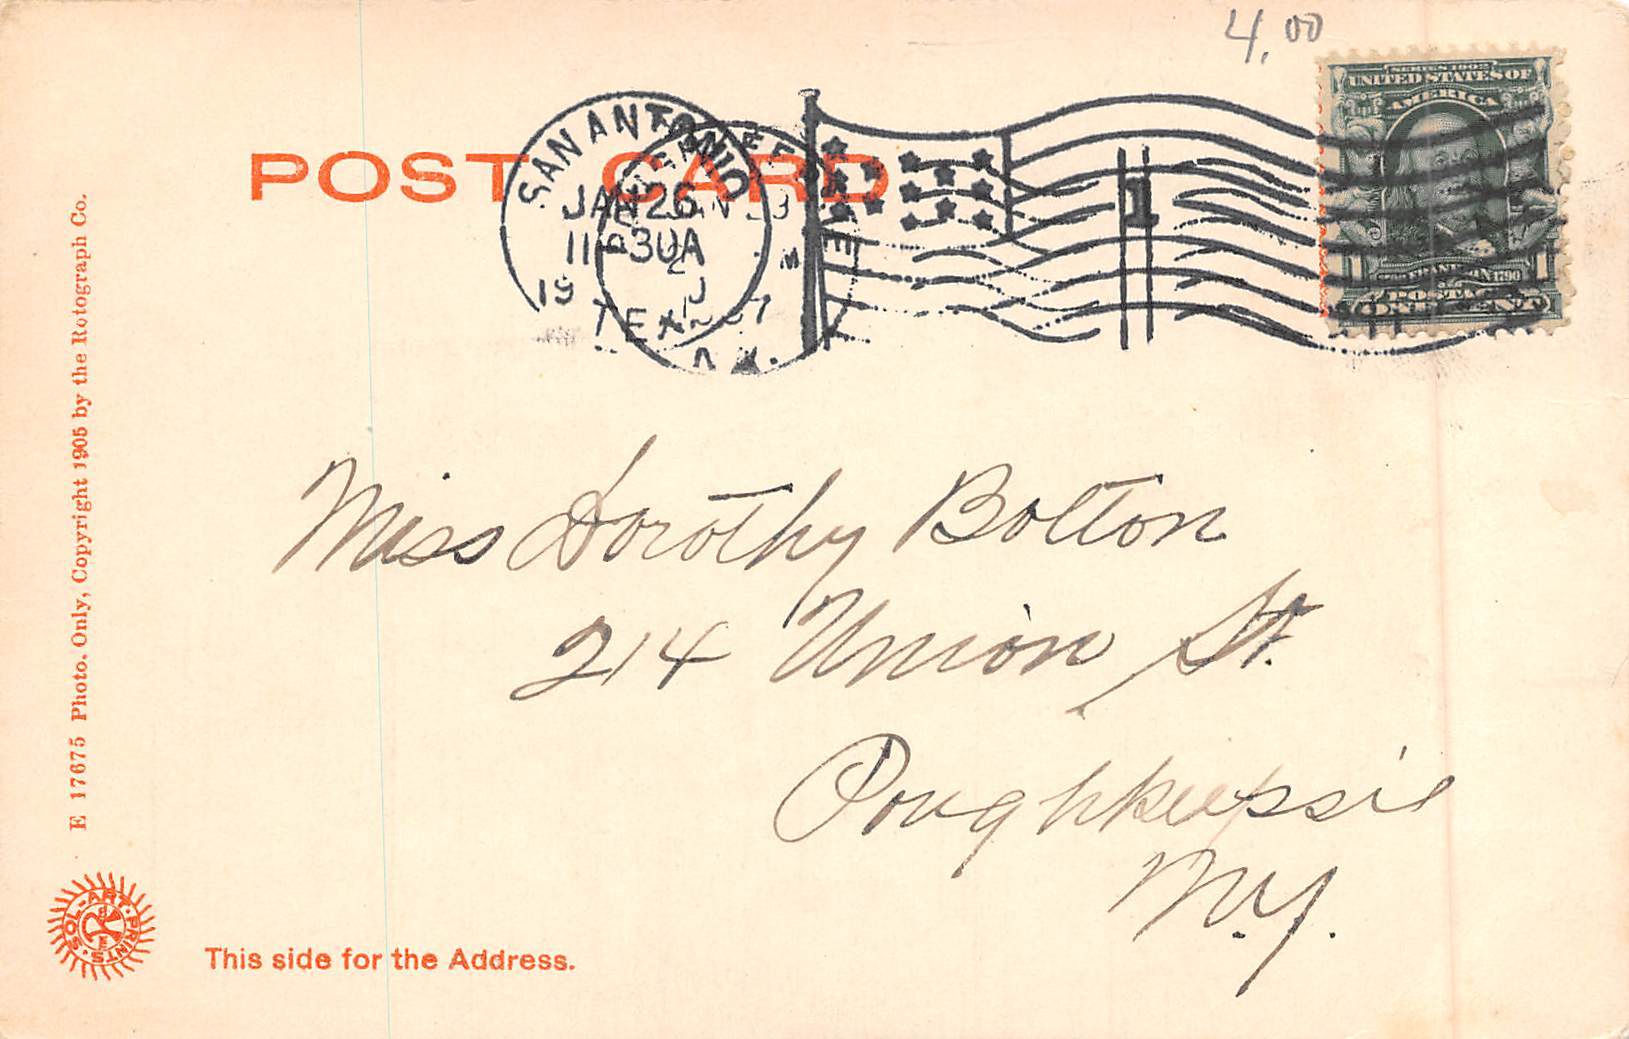 4.00
SERIES 1902
UNITED STATES OF
AMERICA
FRANKLIN 1790
POSTAGE
1
1
POST CARD
SAN ANTONIO
JAN 26
11-30A
19
TEXAS
JAN
M
07
N.Y.
1
Miss Dorothy Bolton
214 Union St.
Poughkeepsie
N.Y.
E 17675 Photo. Only, Copyright 1905 by the Rotograph Co.
SOL-ART-PRINTS
This side for the Address.